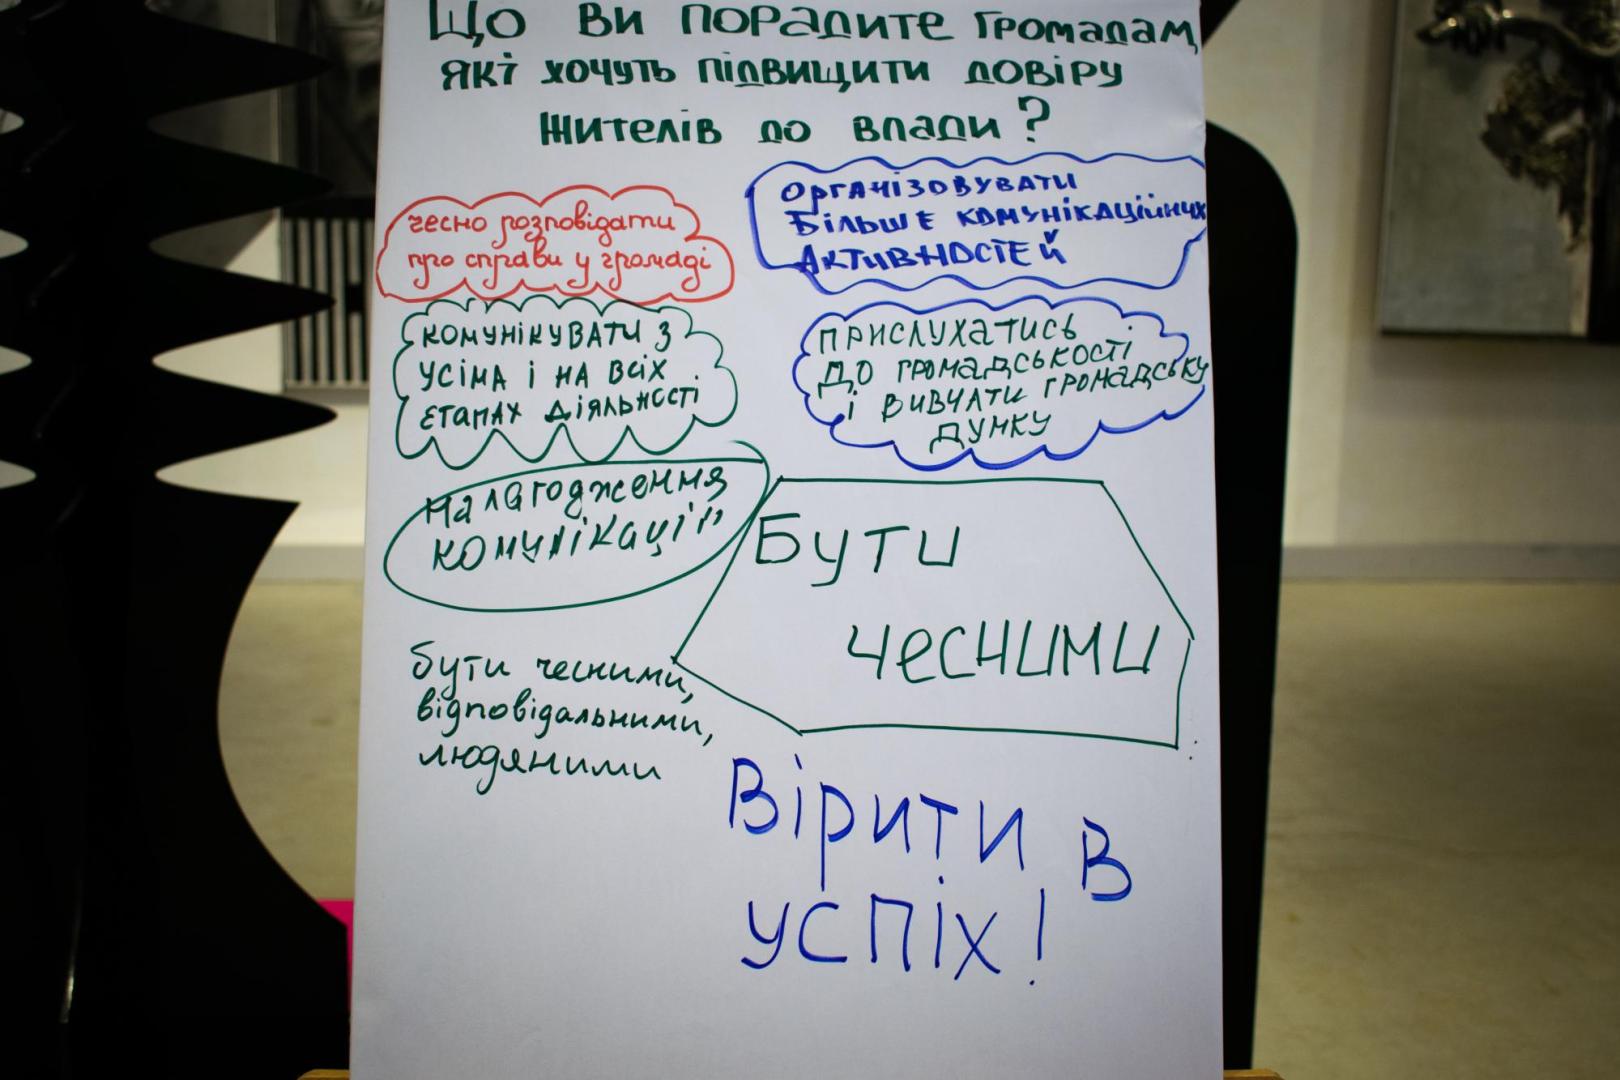 Що ви порадите громадам,
які хочуть підвищити довіру
жителів до влади?
чесно розповідати
про справи у громаді
Організовувати
більше комунікаційних
активностей
комунікувати з
усіма і на всіх
етапах діяльності
прислухатись
до громадськості
і вивчати громадську
думку
налагодження
комунікації
Бути
чесними
бути чесними,
відповідальними,
людяними
Вірити в
успіх!